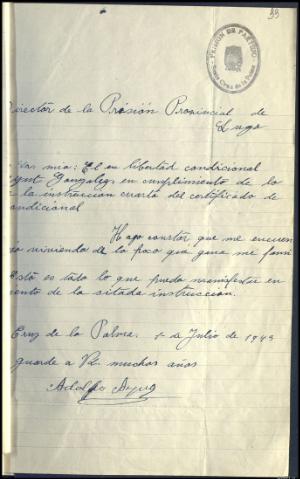 33
PRISION DE PARTIDO
Santa Cruz de la Palma
irector de la Prisión Provincial de
Lugo
mio: El en libertad condicional
Gonzalez, en cumplimiento de lo
la instrucción cuarta del certificado de
ondicional
Hago constar que me encuen
viviendo de lo poco que gana me fami
Esto es todo lo que puedo manifestar en
iento de la sitada instruccion.
Cruz de la Palma. 1 de Julio de 1943
guarde a Vd. muchos años
Adolfo